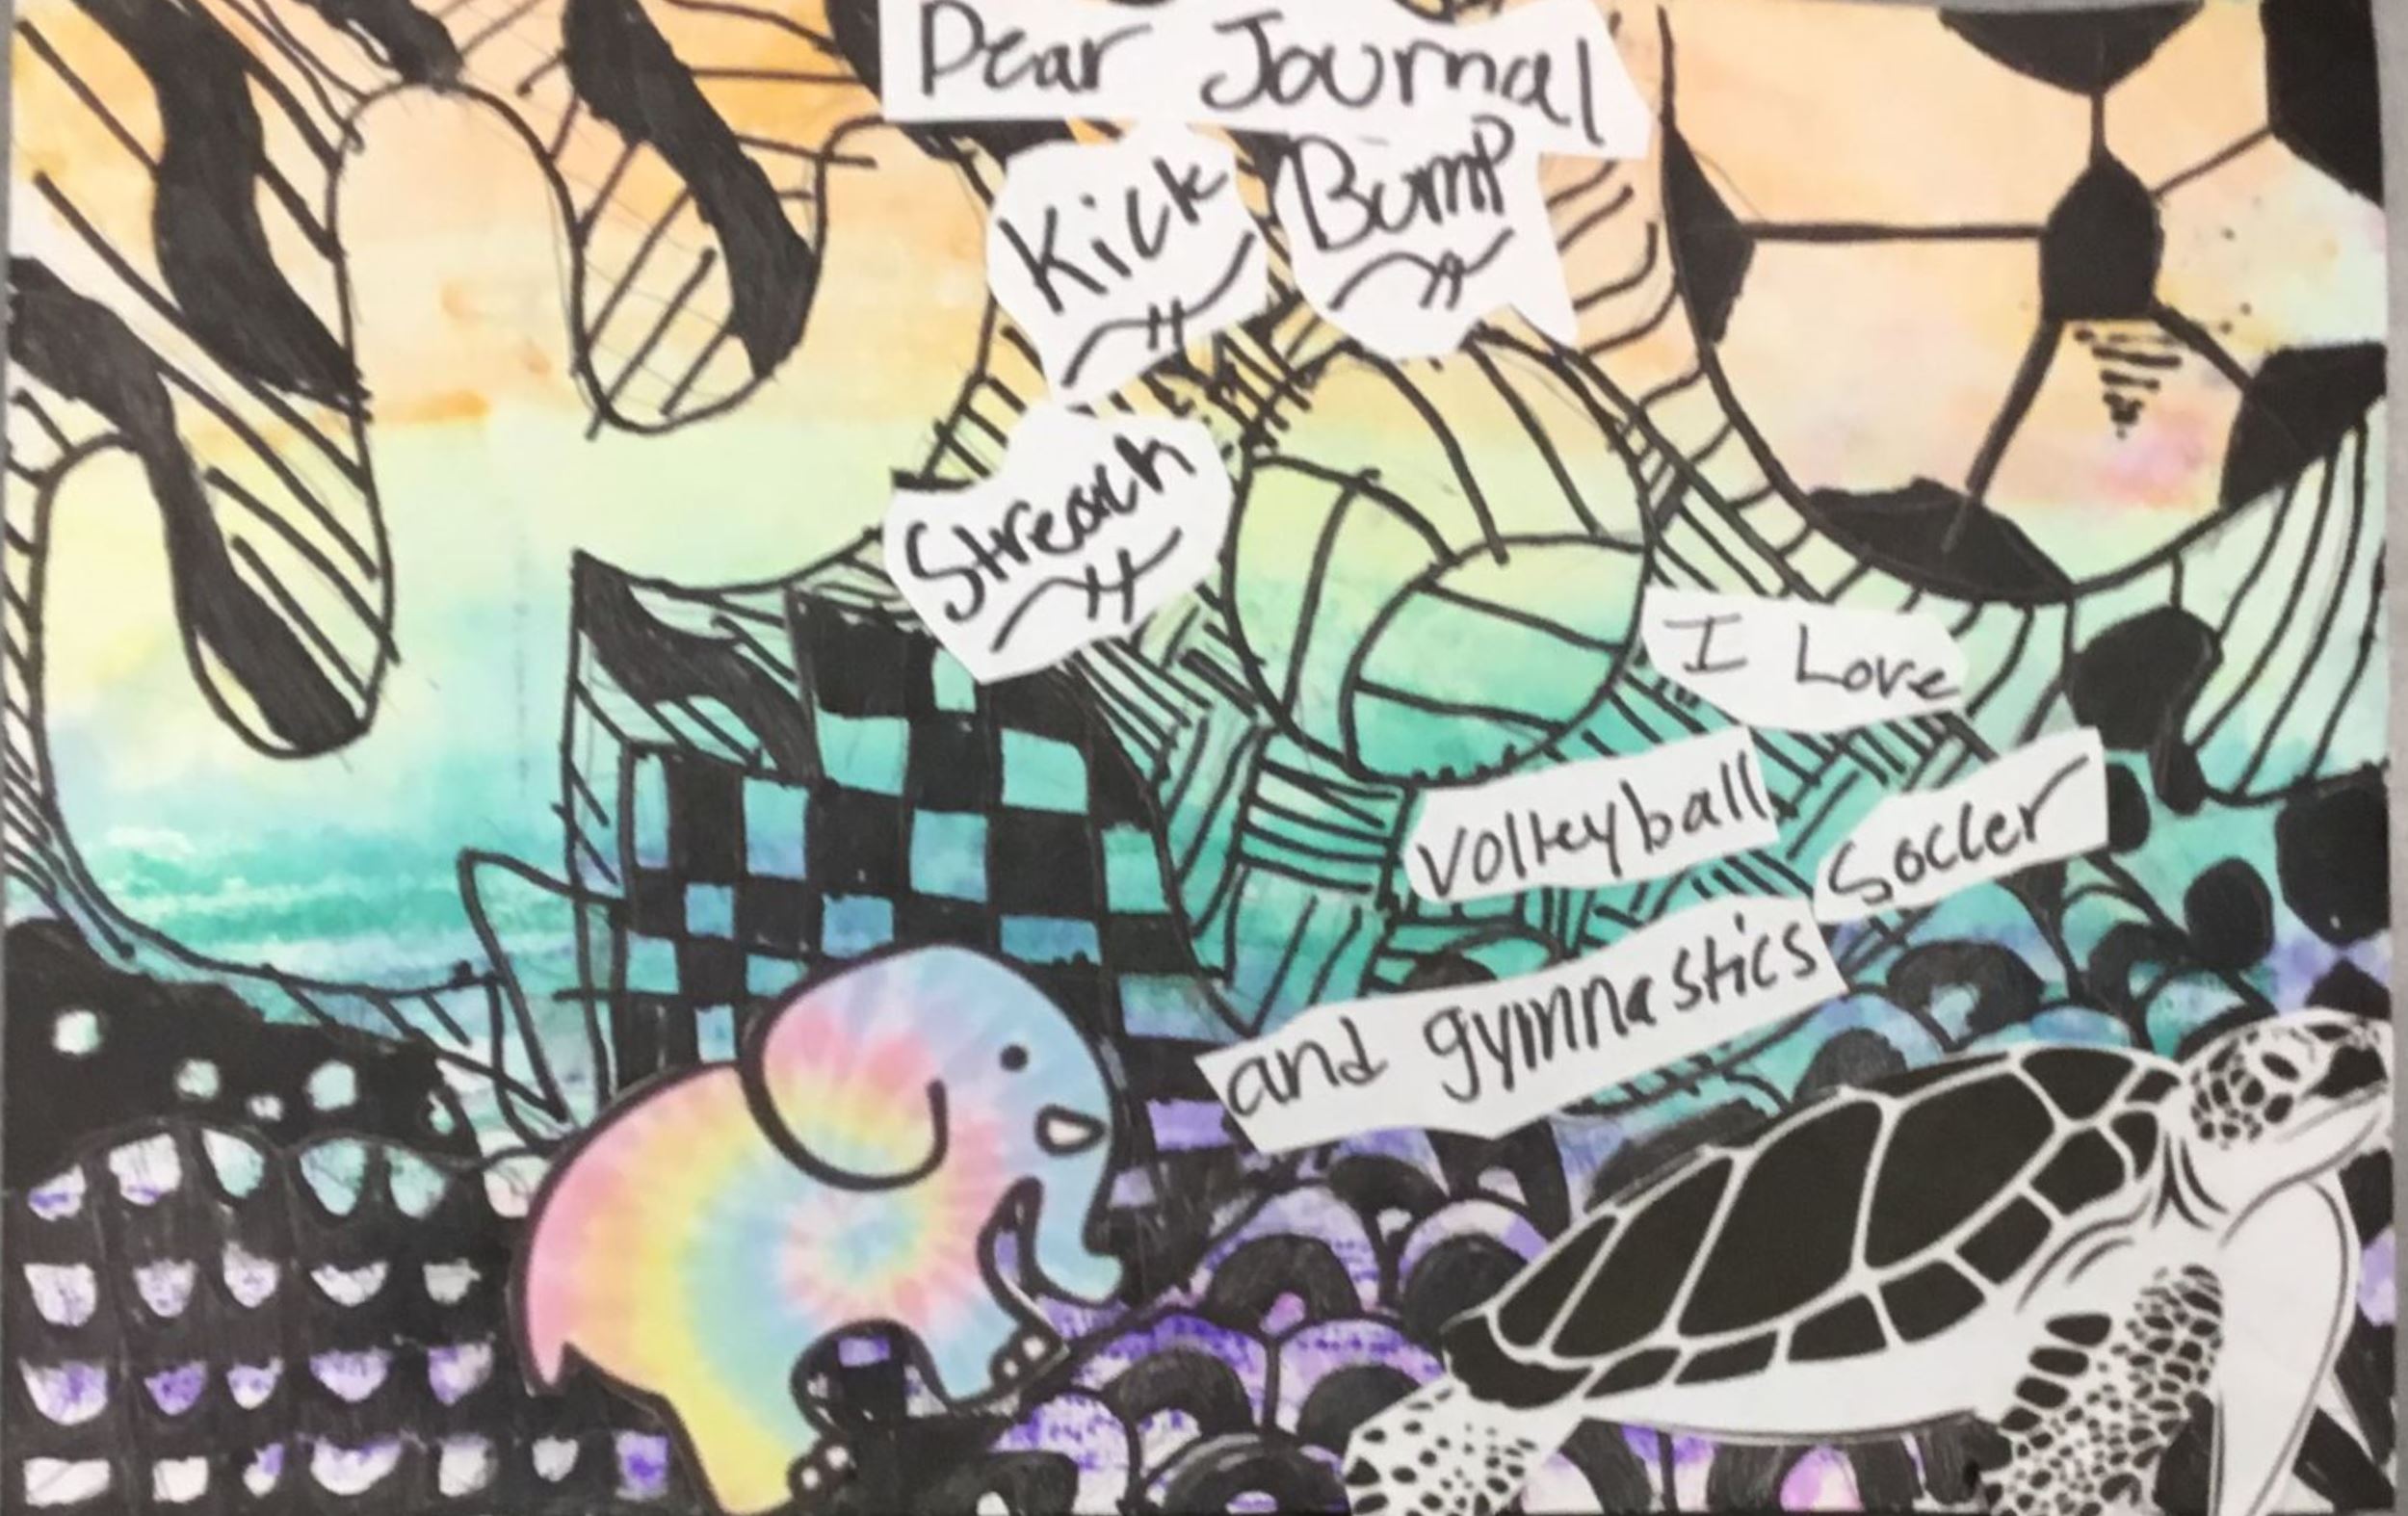 Dear Journal
Kick
Bump
Streach
I Love
volleyball
Soccer
and gymnastics